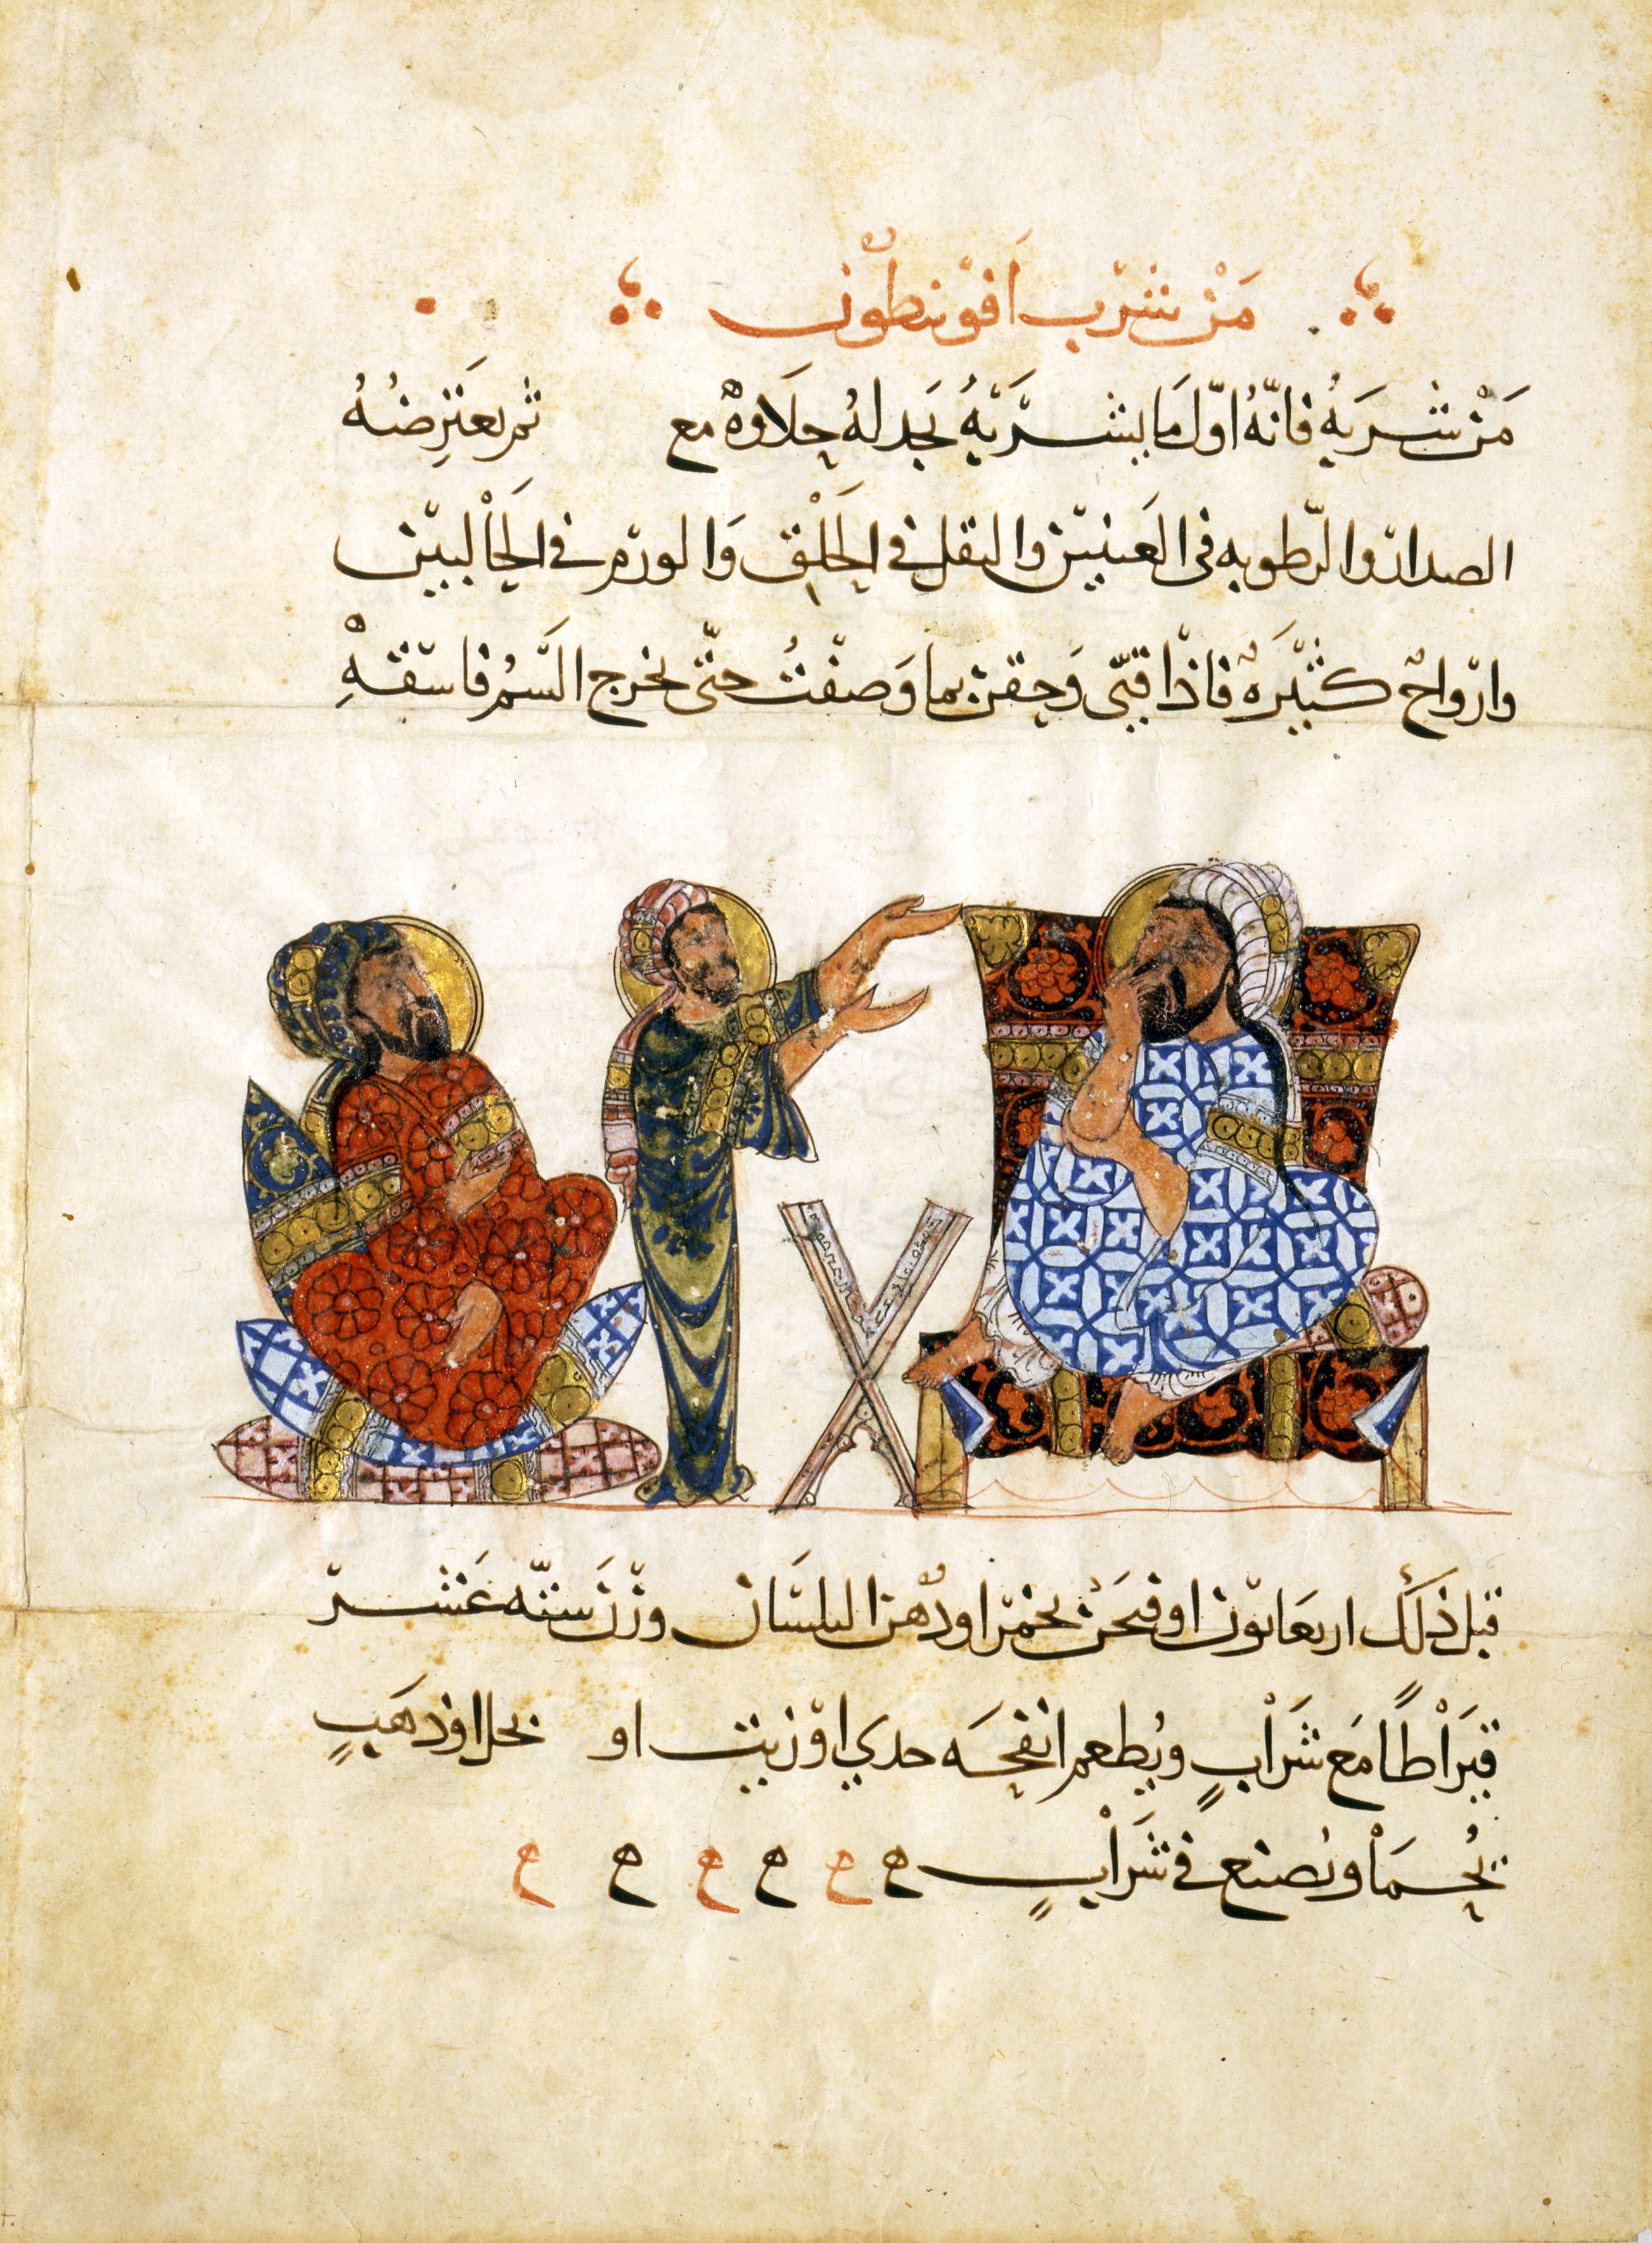 مَنْ شرب اَفوْنيطون
مَنْ شَربَهُ فانّهُ اوّل مَا يشرَبَهُ يَجد لهُ حِلَاوهْ مع ثم يعترضهُ
الصدار والرطوبه فى العينين والثقل في الحَلْق وَالورم في الحَالبين
وارواحٌ كثيَرهٌ فاذا قيّى وَحقن بما وَصفْتُ حتّى يخرج السَّمُ فاسقهِ
قبل ذَلَك اربعَا او بخمر اودُهن البلسَان وزن سَتّه عَشر
قيرَاْطًا مَع شَرَاْبٍ ويُطعم انفحَه جدي اوْ زيت او بخل اوذهَبٍ
يُحمَاْ ويُصنع في شَرَاْبٍ ح ح ح ح ح ح